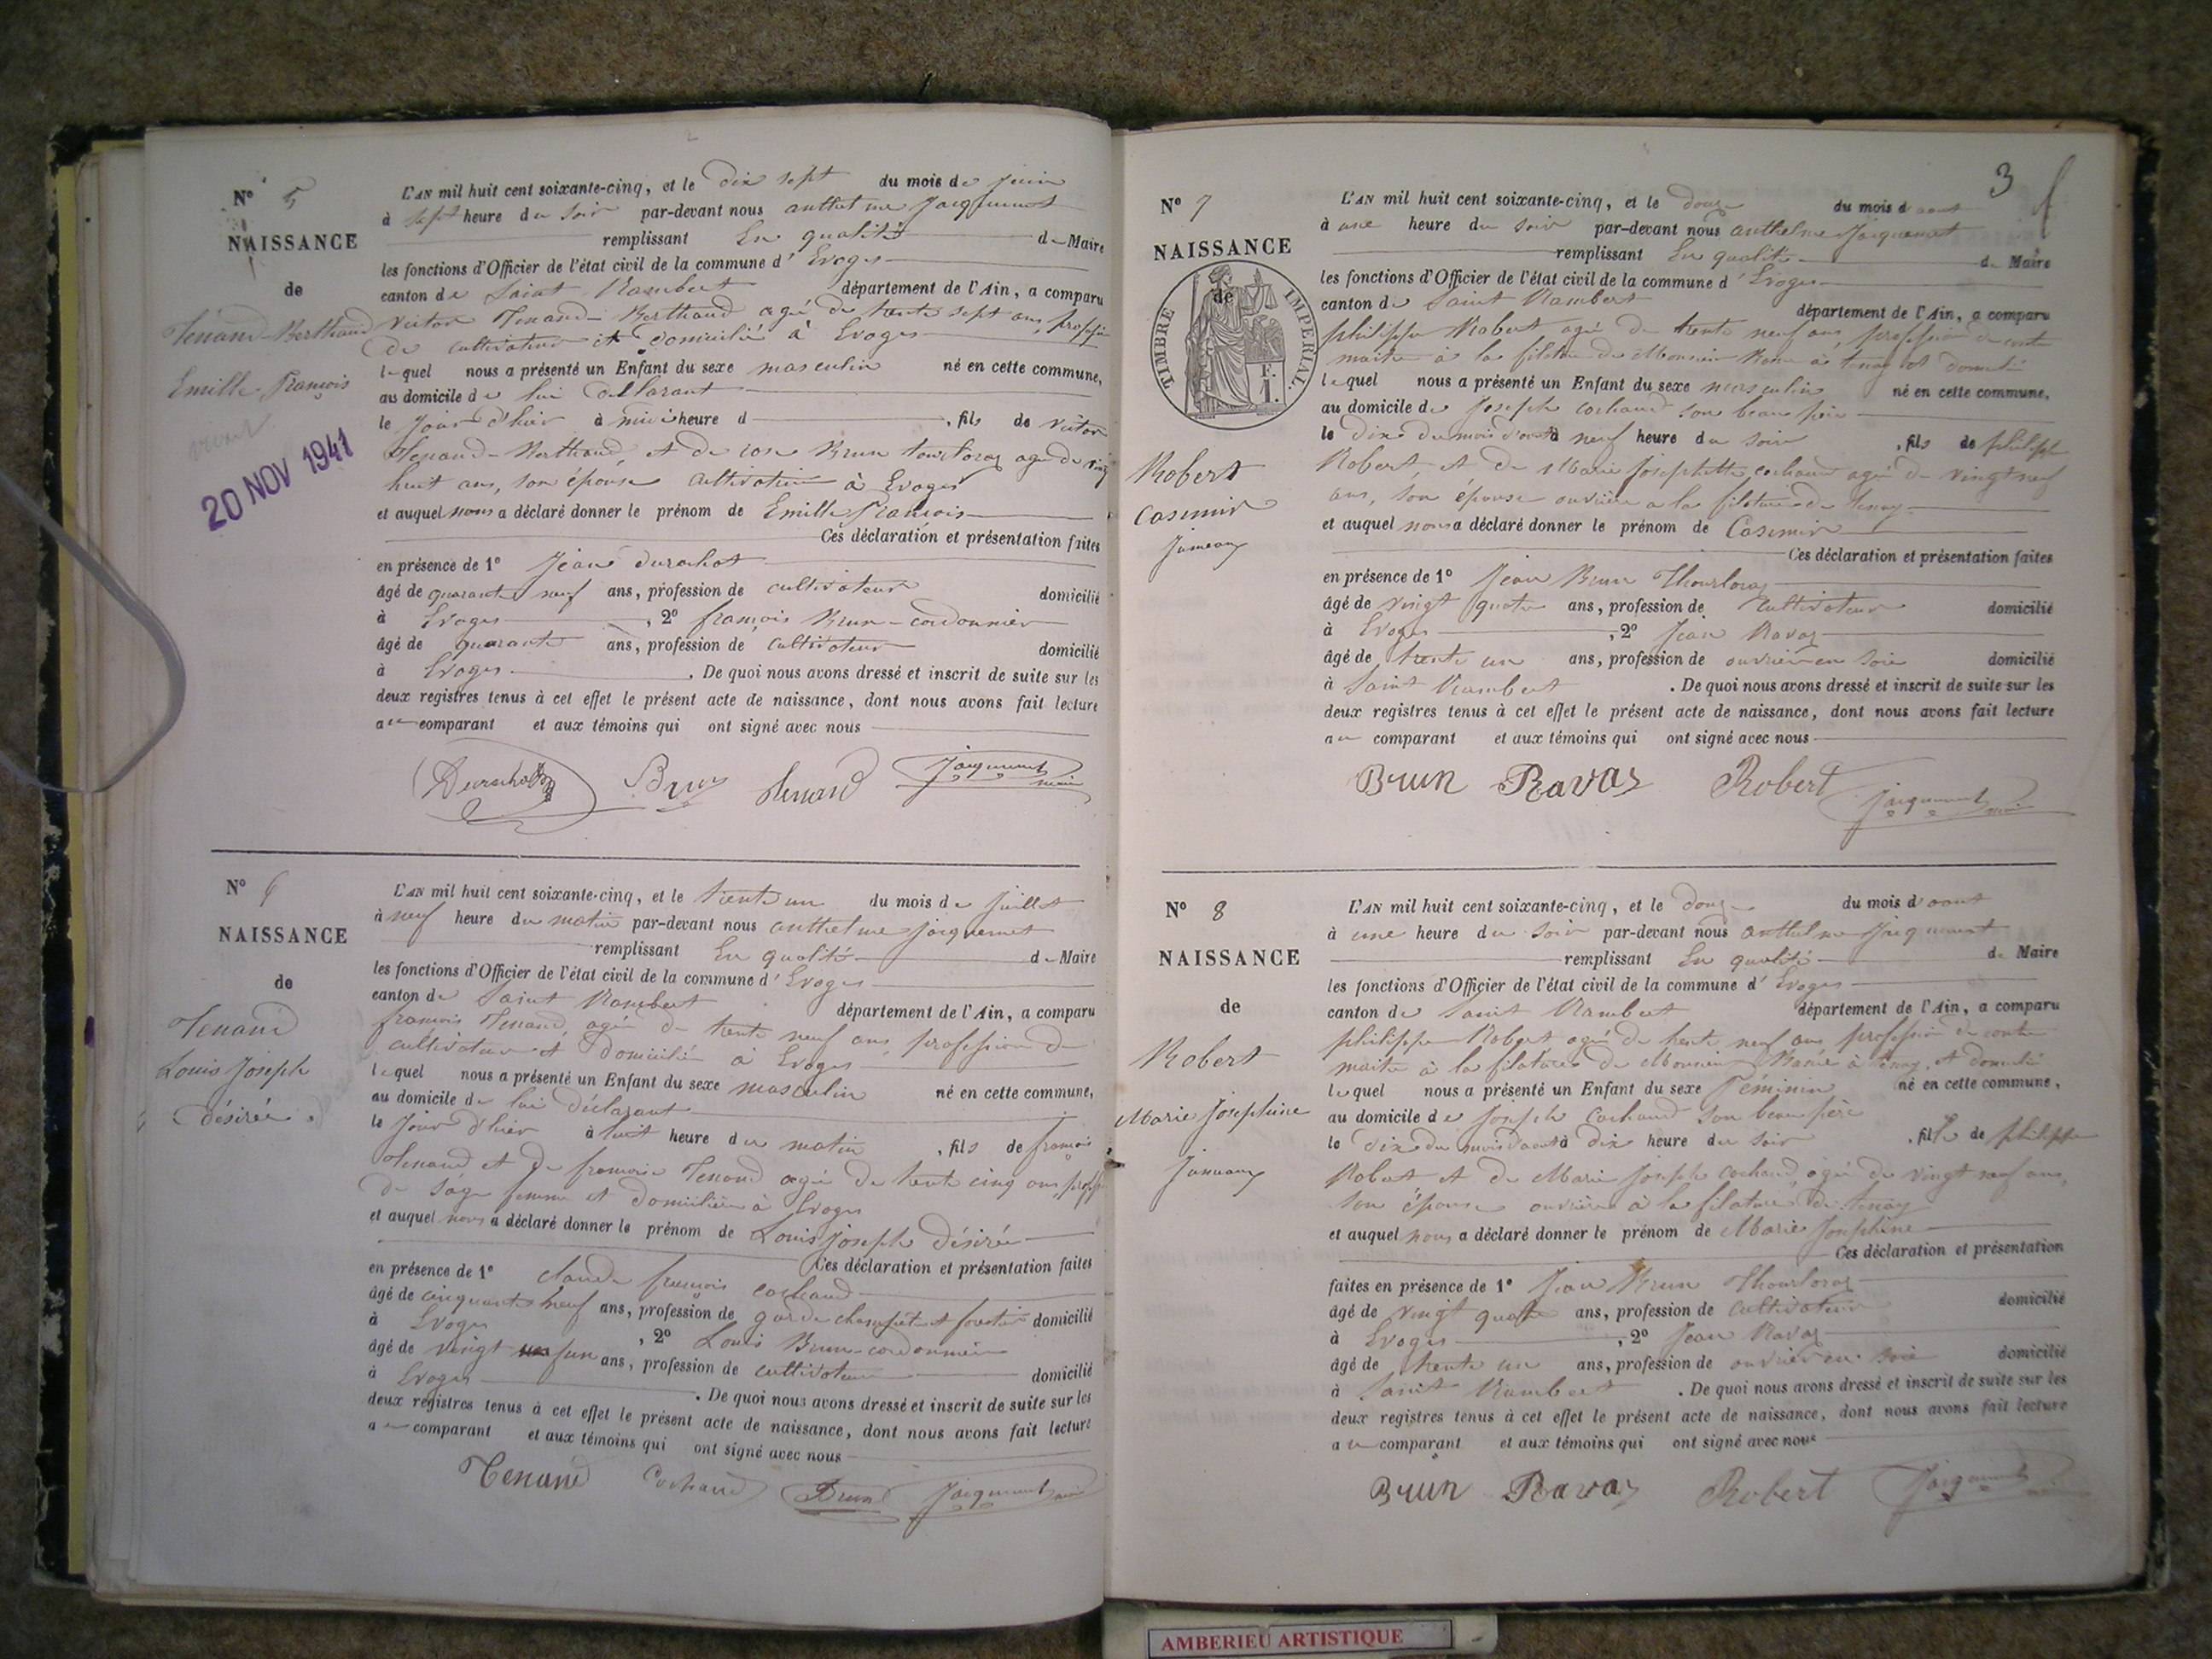 N° 5
NAISSANCE
de
Tenand-Berthand
Emille François
20 NOV 1941
L'AN mil huit cent soixante-cinq, et le dix sept du mois de juin
à sept heure du soir par-devant nous anthelme Jacquemet
remplissant En qualité de Maire
les fonctions d'Officier de l'état civil de la commune d' Evoges
canton de Saint Rambert département de l'Ain, a comparu
Victor Tenand-Berthand agé de trente sept ans, profession
de cultivateur et domicilié à Evoges
lequel nous a présenté un Enfant du sexe masculin né en cette commune,
au domicile de lui déclarant
le jour d'hier à midi heure d , fils de victor
Tenand-Berthand, et de rose Brun tourloraz agé de vingt
huit ans, son épouse cultivatrice à Evoges
et auquel nous a déclaré donner le prénom de Emille François
Ces déclaration et présentation faites
en présence de 1° Jean durochat
âgé de quarante neuf ans, profession de cultivateur domicilié
à Evoges , 2° françois Brun-cordonnier
âgé de quarante ans, profession de cultivateur domicilié
à Evoges . De quoi nous avons dressé et inscrit de suite sur les
deux registres tenus à cet effet le présent acte de naissance, dont nous avons fait lecture
au comparant et aux témoins qui ont signé avec nous
Durochat Brun Tenand Jacquemet maire
N° 6
NAISSANCE
de
Tenand
Louis Joseph
désirée
L'AN mil huit cent soixante-cinq, et le trente un du mois de juillet
à neuf heure du matin par-devant nous anthelme Jacquemet
remplissant En qualité de Maire
les fonctions d'Officier de l'état civil de la commune d' Evoges
canton de Saint Rambert département de l'Ain, a comparu
françois Tenand, agé de trente neuf ans profession de
cultivateur et domicilié à Evoges
lequel nous a présenté un Enfant du sexe masculin né en cette commune,
au domicile de lui déclarant
le jour d'hier à huit heure du matin , fils de françois
Tenand et de françoise Tenand agé de trente cinq ans prof
de sage femme et domiciliée à Evoges
et auquel nous a déclaré donner le prénom de Louis Joseph désirée
Ces déclaration et présentation faites
en présence de 1° claude françois cochand
âgé de cinquante neuf ans, profession de garde champêtre et forestier domicilié
à Evoges , 2° Louis Brun-cordonnier
âgé de vingt un ans, profession de cultivateur domicilié
à Evoges . De quoi nous avons dressé et inscrit de suite sur les
deux registres tenus à cet effet le présent acte de naissance, dont nous avons fait lecture
au comparant et aux témoins qui ont signé avec nous
Tenand Cochand Brun Jacquemet maire
3
N° 7
NAISSANCE
de
TIMBRE IMPERIAL
F.
1.
Robert
Casimir
Jumeau
L'AN mil huit cent soixante-cinq, et le douze du mois d'aout
à une heure du soir par-devant nous anthelme Jacquemet
remplissant En qualité de Maire
les fonctions d'Officier de l'état civil de la commune d' Evoges
canton de Saint Rambert département de l'Ain, a comparu
philippe Robert agé de trente neuf ans, profession de contre
maitre à la filature de Monsieur à tenay et domicilié
lequel nous a présenté un Enfant du sexe masculin né en cette commune,
au domicile de Joseph cochand son beau père
le dix du mois d'aout à neuf heure du soir , fils de philippe
Robert, et de Marie Josephette cochand agé de vingt neuf
ans, son épouse ouvrière a la filature de tenay
et auquel nous a déclaré donner le prénom de Casimir
Ces déclaration et présentation faites
en présence de 1° Jean Brun Thourloraz
âgé de vingt quatre ans, profession de cultivateur domicilié
à Evoges , 2° Jean Ravaz
âgé de trente un ans, profession de ouvrier en soie domicilié
à Saint Rambert . De quoi nous avons dressé et inscrit de suite sur les
deux registres tenus à cet effet le présent acte de naissance, dont nous avons fait lecture
au comparant et aux témoins qui ont signé avec nous
Brun Ravaz Robert Jacquemet maire
N° 8
NAISSANCE
de
Robert
Marie Josephine
Jumeaux
L'AN mil huit cent soixante-cinq, et le douze du mois d'aout
à une heure du soir par-devant nous anthelme Jacquemet
remplissant En qualité de Maire
les fonctions d'Officier de l'état civil de la commune d' Evoges
canton de Saint Rambert département de l'Ain, a comparu
philippe Robert agé de trente neuf ans profession de contre
maitre à la filature de Monsieur à tenay, et domicilié
lequel nous a présenté un Enfant du sexe féminin né en cette commune,
au domicile de Joseph Cochand son beau père
le dix du mois d'aout à dix heure du soir , fille de philippe
Robert et de Marie Joseph cochand, agé de vingt neuf ans,
son épouse ouvrière à la filature de tenay
et auquel nous a déclaré donner le prénom de Marie Josephine
Ces déclaration et présentation
faites en présence de 1° Jean Brun Thourloraz
âgé de vingt quatre ans, profession de cultivateur domicilié
à Evoges , 2° Jean Ravaz
âgé de trente un ans, profession de ouvrier en soie domicilié
à Saint Rambert . De quoi nous avons dressé et inscrit de suite sur les
deux registres tenus à cet effet le présent acte de naissance, dont nous avons fait lecture
au comparant et aux témoins qui ont signé avec nous
Brun Ravaz Robert Jacquemet
AMBERIEU ARTISTIQUE